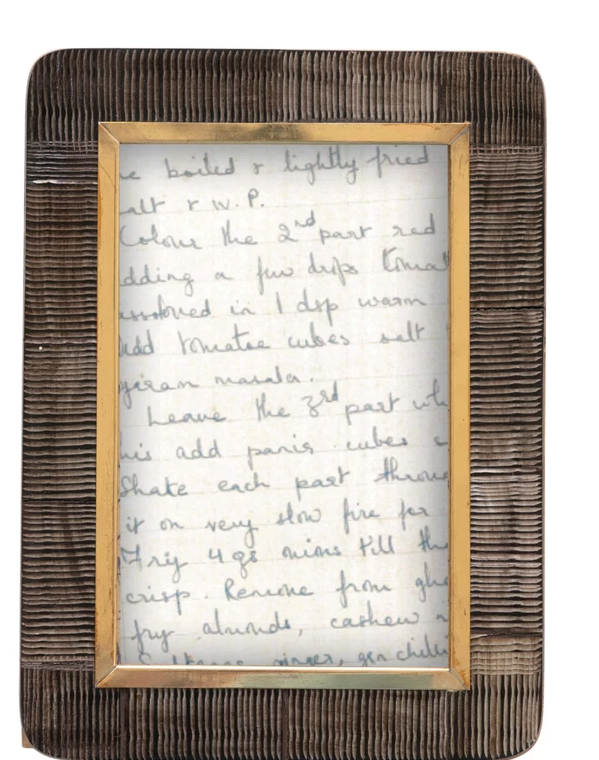 e boiled & lightly fried
alt & W.P.
Colour the 2nd part red
dding a few drops tomat
in 1 dsp warm
add tomatoe cubes salt
garam masala.
Leave the 3rd part whi
his add panir cubes
Shake each part throu
it on very slow fire for
Fry 4 gs onions till the
crisp. Remove from ghe
fry almonds, cashew n
ginger, grn chilli